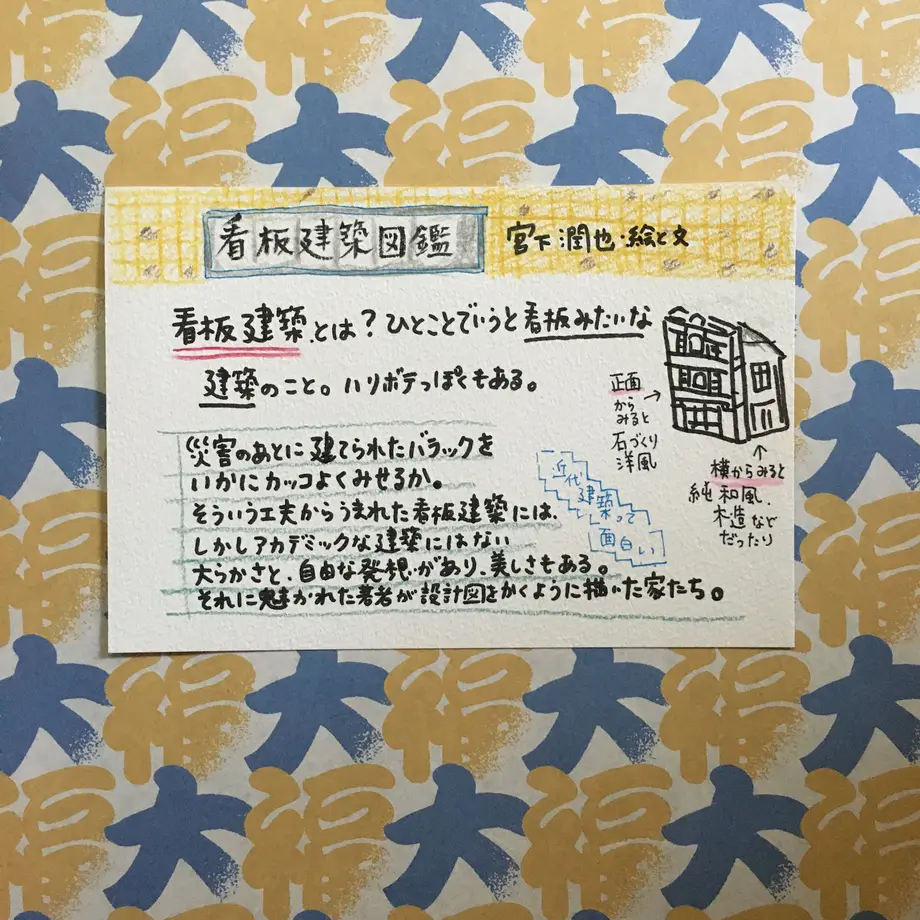 看板建築図鑑 宮下潤也・絵と文
看板建築とは？ひとことでいうと看板みたいな
建築のこと。ハリボテっぽくもある。
正面
から
みると
石づくり
洋風
横からみると
純和風、
木造など
だったり
災害のあとに建てられたバラックを
いかにカッコよくみせるか。
そういう工夫からうまれた看板建築には、
しかしアカデミックな建築にはない
大らかさと、自由な発想があり、美しさもある。
それに魅かれた著者が設計図をかくように描いた家たち。
近代
建築って
面白い
大福